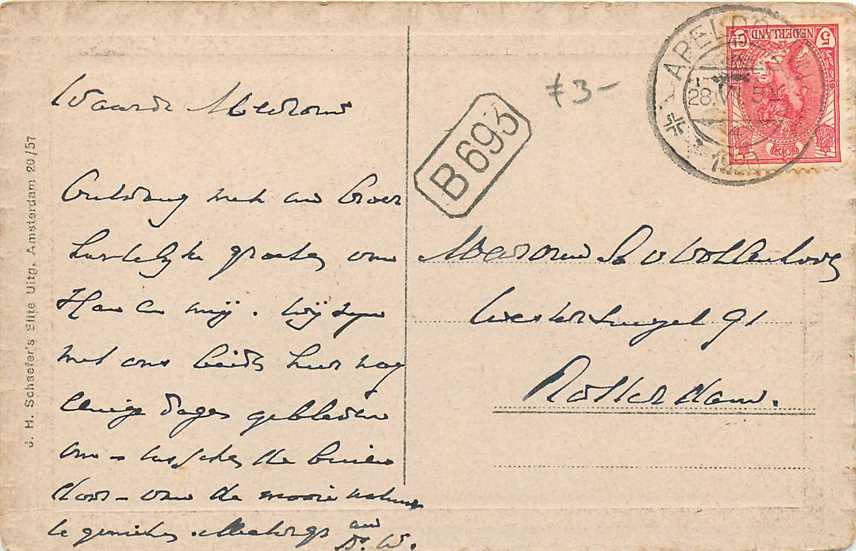 Waarde Mevrouw
Ontvang met uw Broer
hartelijke groeten van
Han en mij. Wij zijn
met ons beide hier nog
eenige dagen gebleven
om – tusschen de buien
door – van de mooie natuur
te genieten.
uw
Dr. W.
J. H. Schaefer's Elite Uitg. Amsterdam 20/57
B693
F3-
APELDOORN
28.VI
5
NEDERLAND
5
Mevrouw
Westersingel 91
Rotterdam.